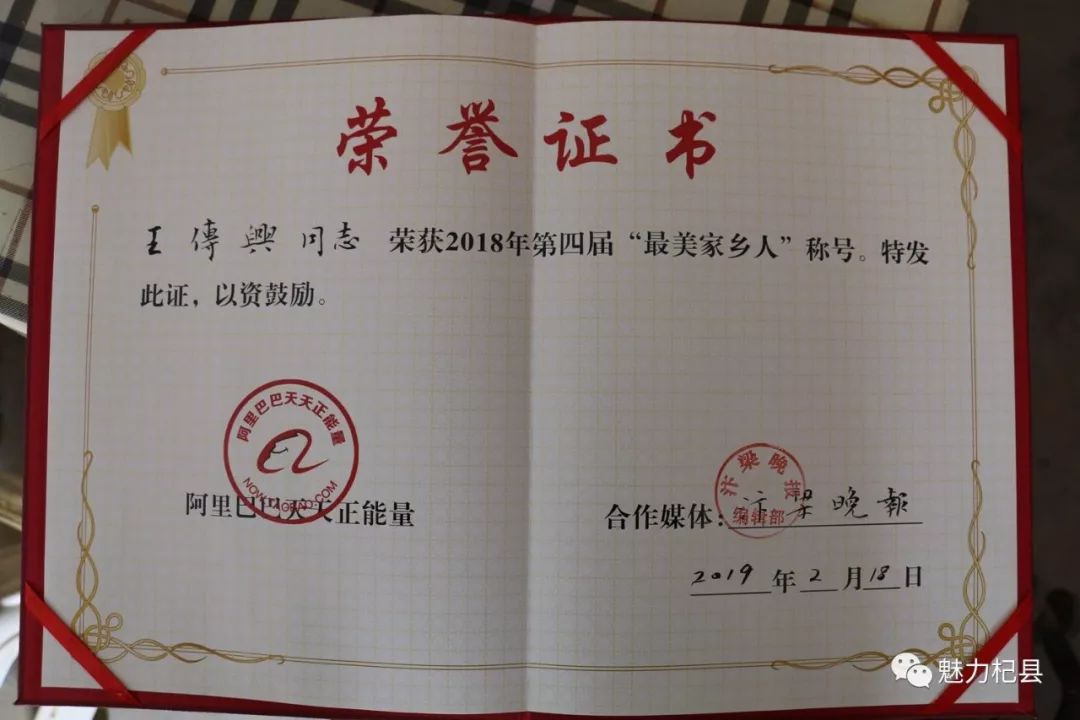 荣誉证书
王傳興同志 荣获2018年第四届“最美家乡人”称号。特发
此证，以资鼓励。
阿里巴巴天天正能量
NOW.TAOBAO.COM
阿里巴巴天天正能量
汴梁晚报
编辑部
合作媒体：汴梁晚報
2019年2月18日
魅力杞县